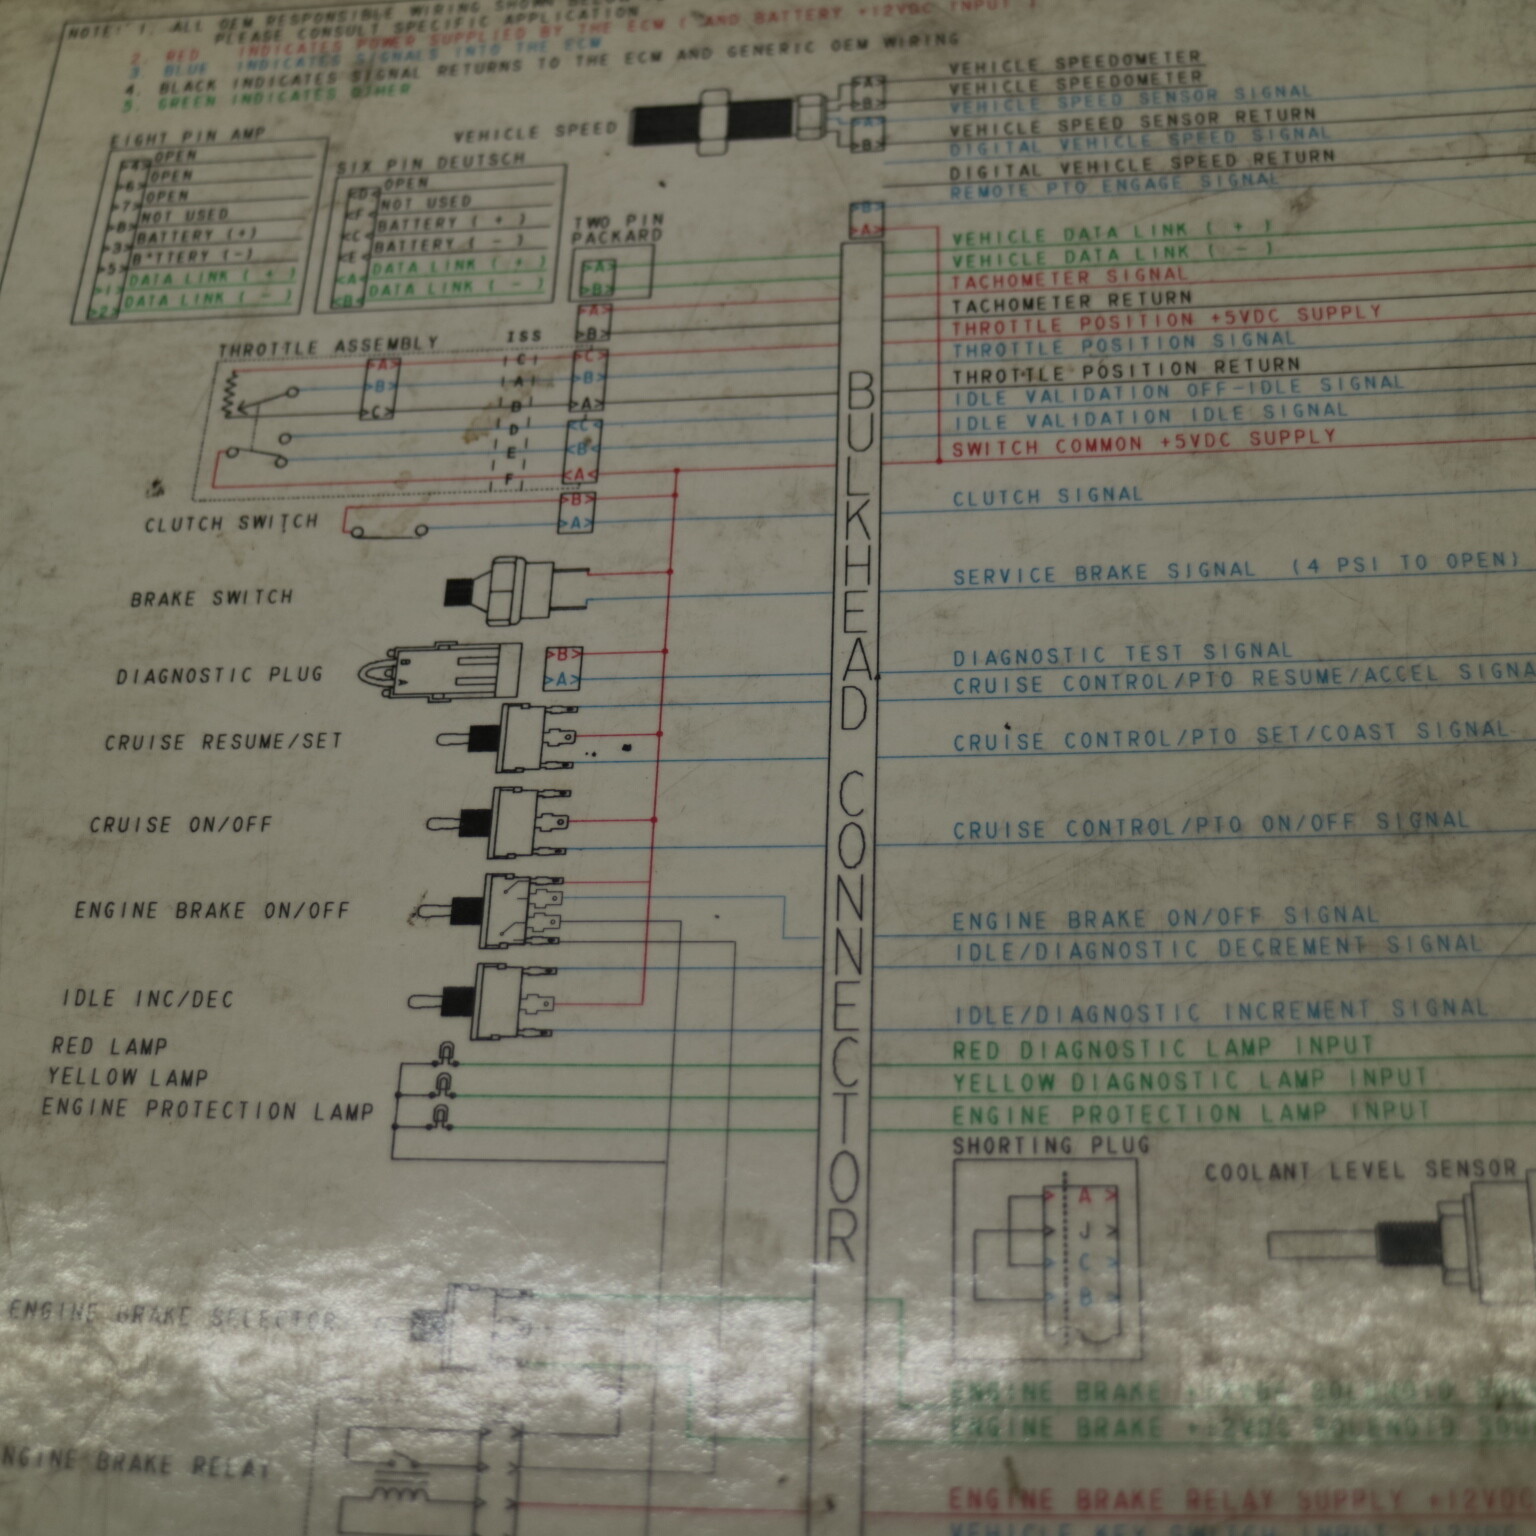 NOTE: 1. ALL OEM RESPONSIBLE WIRING SHOWN
PLEASE CONSULT SPECIFIC APPLICATION
2. RED INDICATES POWER SUPPLIED BY THE ECM ( AND BATTERY +12VDC INPUT )
3. BLUE INDICATES SIGNALS INTO THE ECM
4. BLACK INDICATES SIGNAL RETURNS TO THE ECM AND GENERIC OEM WIRING
5. GREEN INDICATES OTHER
EIGHT PIN AMP
4 OPEN
6 OPEN
7 OPEN
8 NOT USED
3 BATTERY (+)
5 BATTERY (-)
1 DATA LINK ( + )
2 DATA LINK ( - )
SIX PIN DEUTSCH
D OPEN
F NOT USED
C BATTERY ( + )
E BATTERY ( - )
A DATA LINK ( + )
B DATA LINK ( - )
TWO PIN
PACKARD
A
B
VEHICLE SPEED
A
B
A
B
VEHICLE SPEEDOMETER
VEHICLE SPEEDOMETER
VEHICLE SPEED SENSOR SIGNAL
VEHICLE SPEED SENSOR RETURN
DIGITAL VEHICLE SPEED SIGNAL
DIGITAL VEHICLE SPEED RETURN
REMOTE PTO ENGAGE SIGNAL
B
A
VEHICLE DATA LINK ( + )
VEHICLE DATA LINK ( - )
TACHOMETER SIGNAL
TACHOMETER RETURN
THROTTLE POSITION +5VDC SUPPLY
THROTTLE POSITION SIGNAL
THROTTLE POSITION RETURN
IDLE VALIDATION OFF-IDLE SIGNAL
IDLE VALIDATION IDLE SIGNAL
SWITCH COMMON +5VDC SUPPLY
CLUTCH SIGNAL
SERVICE BRAKE SIGNAL (4 PSI TO OPEN)
DIAGNOSTIC TEST SIGNAL
CRUISE CONTROL/PTO RESUME/ACCEL SIGNA
CRUISE CONTROL/PTO SET/COAST SIGNAL
CRUISE CONTROL/PTO ON/OFF SIGNAL
ENGINE BRAKE ON/OFF SIGNAL
IDLE/DIAGNOSTIC DECREMENT SIGNAL
IDLE/DIAGNOSTIC INCREMENT SIGNAL
RED DIAGNOSTIC LAMP INPUT
YELLOW DIAGNOSTIC LAMP INPUT
ENGINE PROTECTION LAMP INPUT
BULKHEAD CONNECTOR
THROTTLE ASSEMBLY
ISS
A
B
C
C
A
B
D
E
F
A
B
C
B
A
C
B
A
CLUTCH SWITCH
B
A
BRAKE SWITCH
DIAGNOSTIC PLUG
B
A
B
A
CRUISE RESUME/SET
CRUISE ON/OFF
ENGINE BRAKE ON/OFF
IDLE INC/DEC
RED LAMP
YELLOW LAMP
ENGINE PROTECTION LAMP
SHORTING PLUG
A
J
C
B
COOLANT LEVEL SENSOR
ENGINE BRAKE SELECTOR
ENGINE BRAKE SOLENOID
ENGINE BRAKE +12VDC SOLENOID
NGINE BRAKE RELAY
ENGINE BRAKE RELAY SUPPLY +12VDC
VEHICLE KEY SWITCH